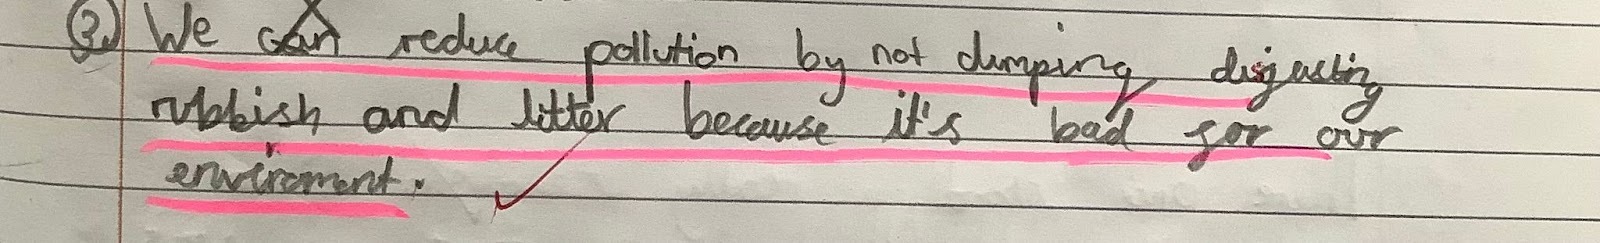 3. We can reduce pollution by not dumping disgasting
rubbish and litter because it's bad for our
envirement.